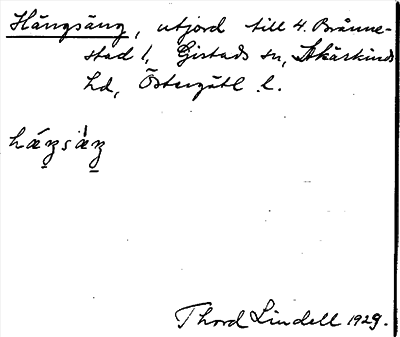 Hängsäng, utjord till 4. Bränne-
stad 1, Gistads sn, Åkerkinds
hd, Östergötl. l.
hǽŋsæ̀ŋ
Thord Lindell 1929.